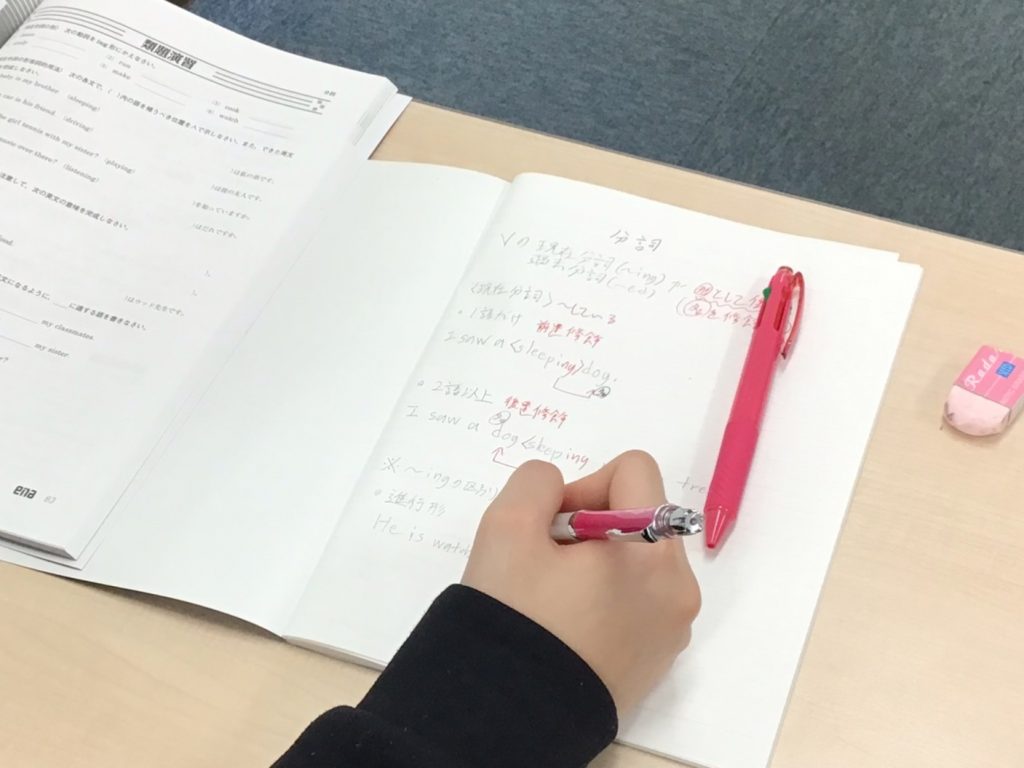 類題演習
次の動詞をing形にかえなさい。
(2) run
(3) cook
(5) make
(6) watch
次の各文で、( )内の語を補うべき位置を∧で示しなさい。また、できた英文
baby is my brother. (sleeping)
)は私の弟です。
car is his friend. (driving)
)は彼の友人です。
he girl tennis with my sister? (playing)
)を知っていますか。
over there? (listening)
)はだれですか。
注意して、次の英文の意味を完成しなさい。
)はウッド先生です。
文になるように、___に適する語を書きなさい。
my classmates.
my sister
ena
分詞
Vの現在分詞(~ing)や
過去分詞(~ed)
として
を修飾
〈現在分詞〉~している
・1語だけ 前置修飾
I saw a <sleeping> dog.
・2語以上 後置修飾
I saw a dog <sleeping
tre
※~ingの区別
・進行形
He is watch
Rada